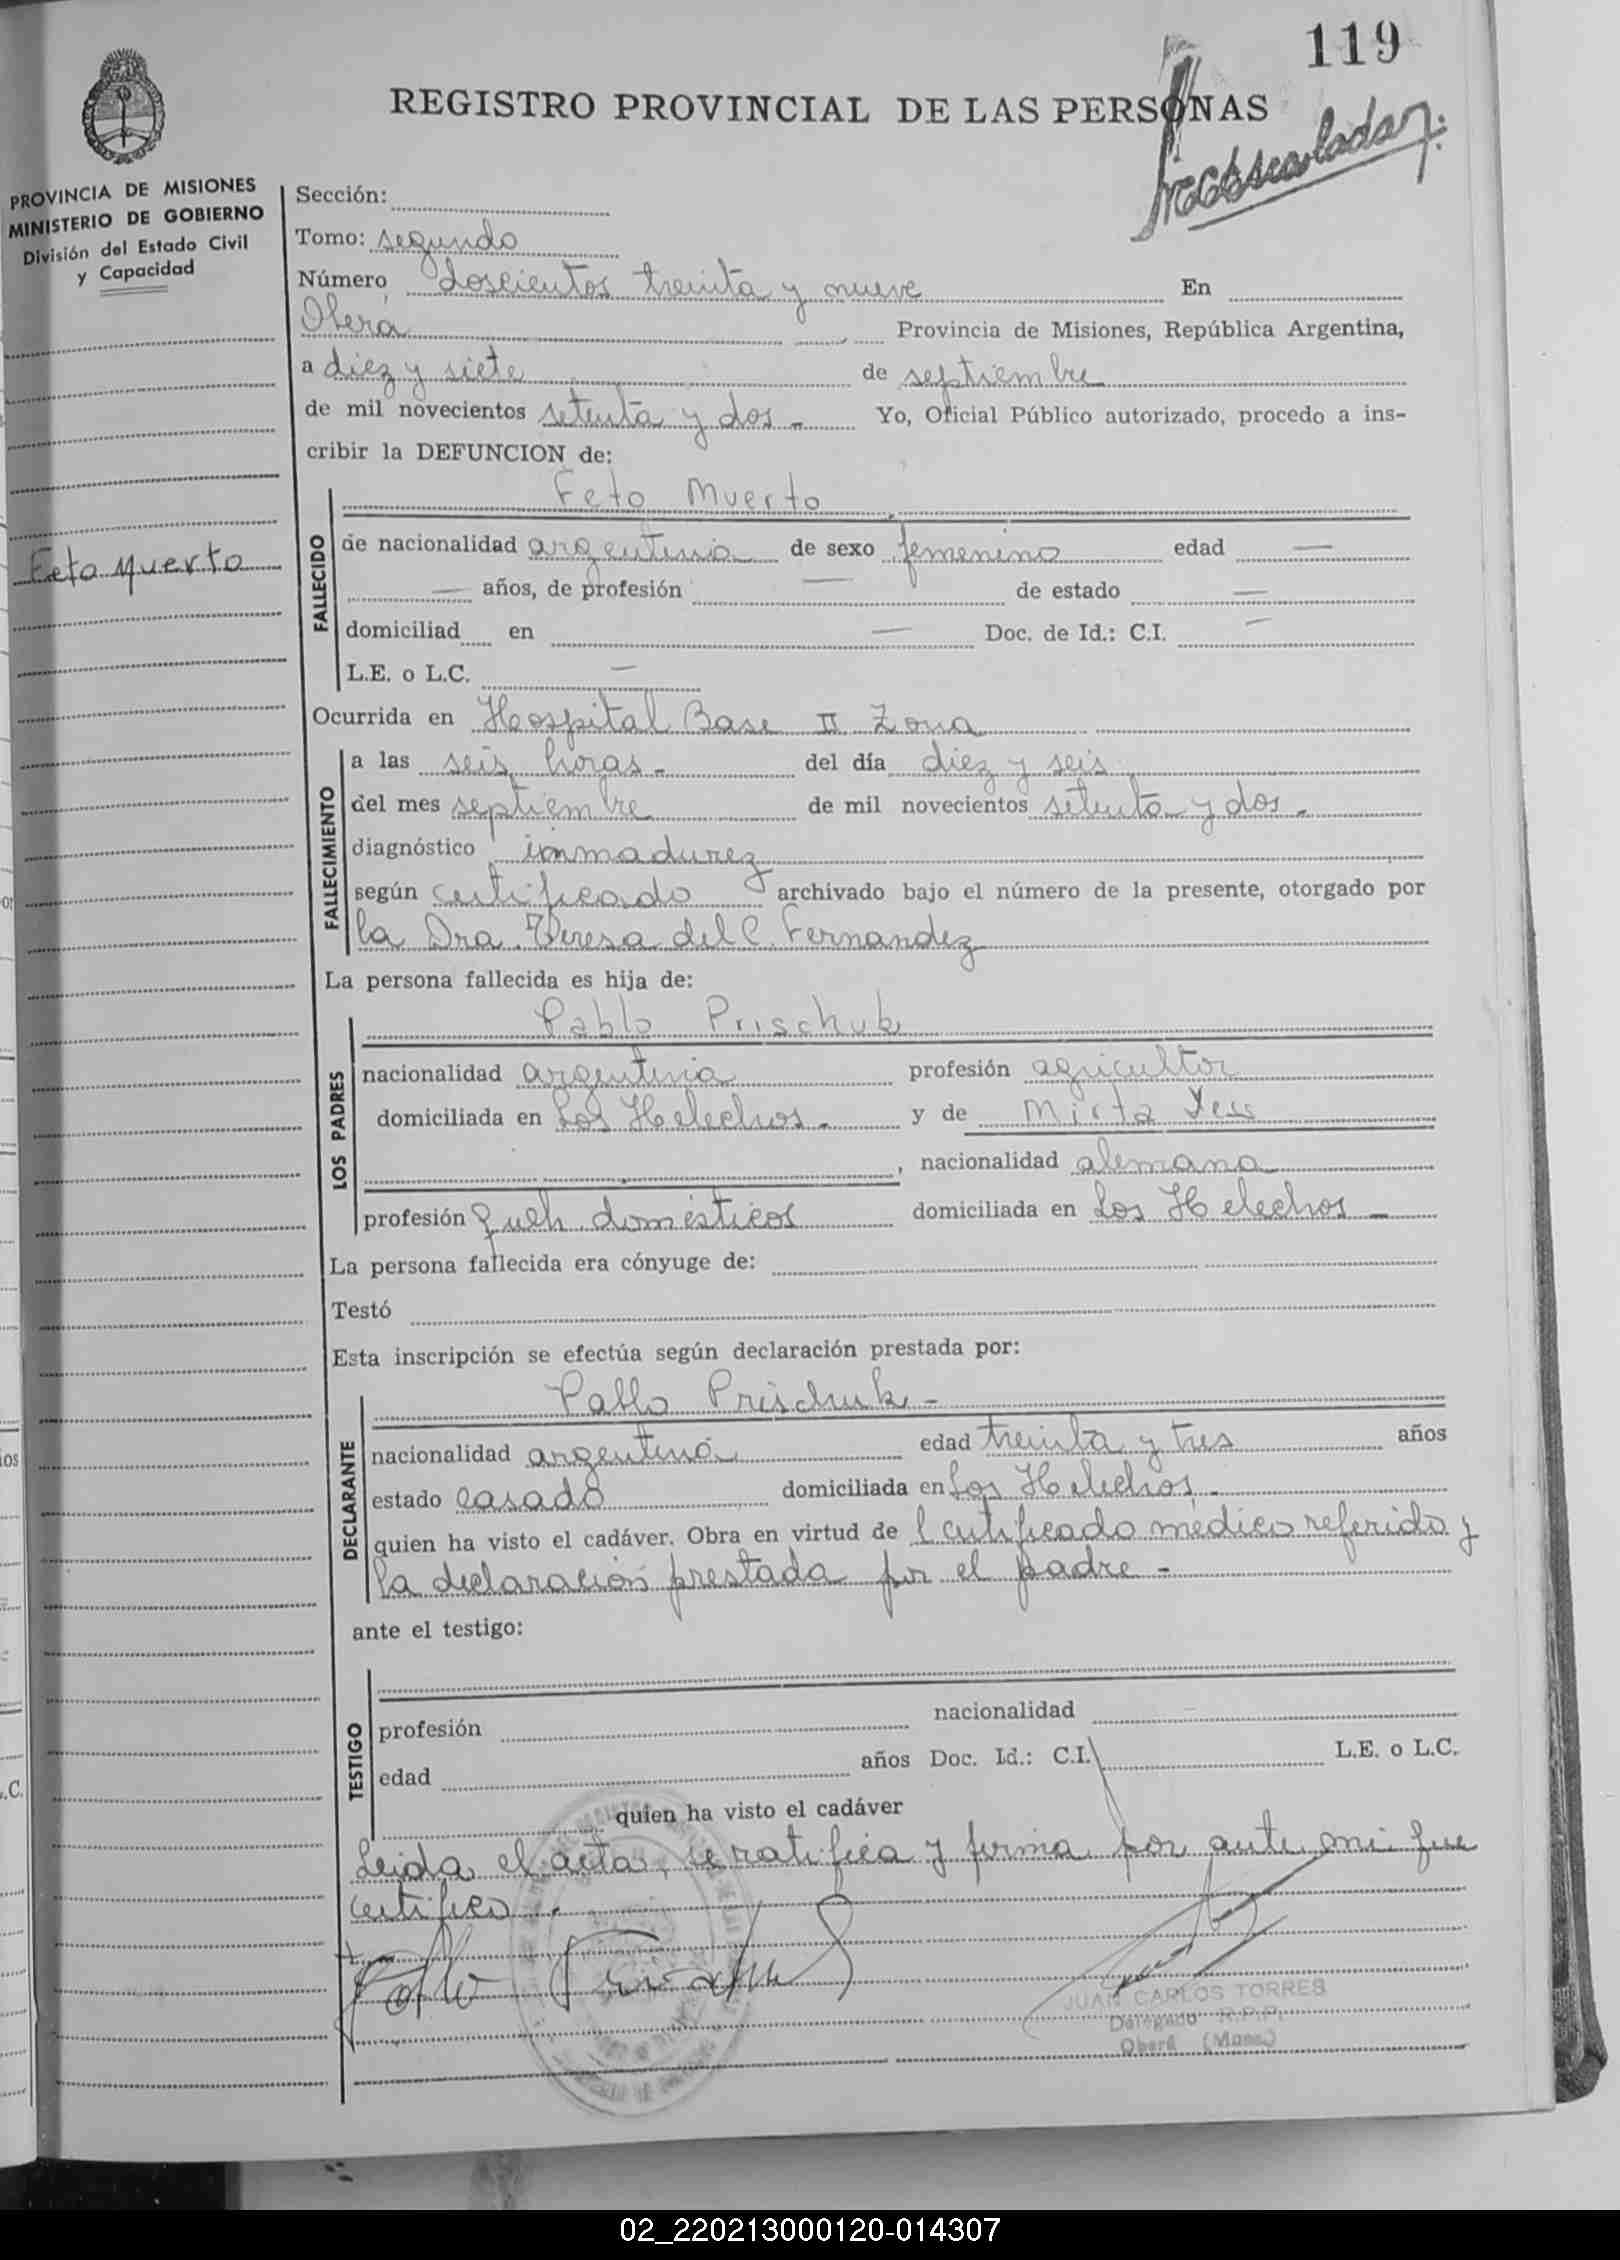 119
REGISTRO PROVINCIAL DE LAS PERSONAS
PROVINCIA DE MISIONES
MINISTERIO DE GOBIERNO
División del Estado Civil
y Capacidad
Sección:
Tomo: segundo
Número doscientos treinta y nueve En
Oberá Provincia de Misiones, República Argentina,
a diez y siete de septiembre
de mil novecientos setenta y dos - Yo, Oficial Público autorizado, procedo a ins-
cribir la DEFUNCION de:
Feto Muerto
Feto Muerto
FALLECIDO
de nacionalidad argentina de sexo femenino edad —
— años, de profesión — de estado —
domiciliad en — Doc. de Id.: C.I. —
L.E. o L.C. —
Ocurrida en Hospital Base II Zona
FALLECIMIENTO
a las seis horas - del día diez y seis
del mes septiembre de mil novecientos setenta y dos -
diagnóstico inmadurez
según certificado archivado bajo el número de la presente, otorgado por
la Dra. Teresa del C. Fernandez
La persona fallecida es hija de:
LOS PADRES
Pablo Prischuk
nacionalidad argentina profesión agricultor
domiciliada en Los Helechos - y de Mirta
, nacionalidad alemana
profesión domésticos domiciliada en Los Helechos -
La persona fallecida era cónyuge de:
Testó
Esta inscripción se efectúa según declaración prestada por:
DECLARANTE
Pablo Prischuk -
nacionalidad argentina edad treinta y tres años
estado casado domiciliada en Los Helechos -
quien ha visto el cadáver. Obra en virtud de l certificado medico referido y
la declaración prestada por el padre -
ante el testigo:
TESTIGO
profesión nacionalidad
edad años Doc. Id.: C.I. L.E. o L.C.
quien ha visto el cadáver
Leida el acta, se ratifica y firma por ante mi que
certifico.
JUAN CARLOS TORRES
Delegado R.P.P.
Oberá (Mnes.)
02_220213000120-014307